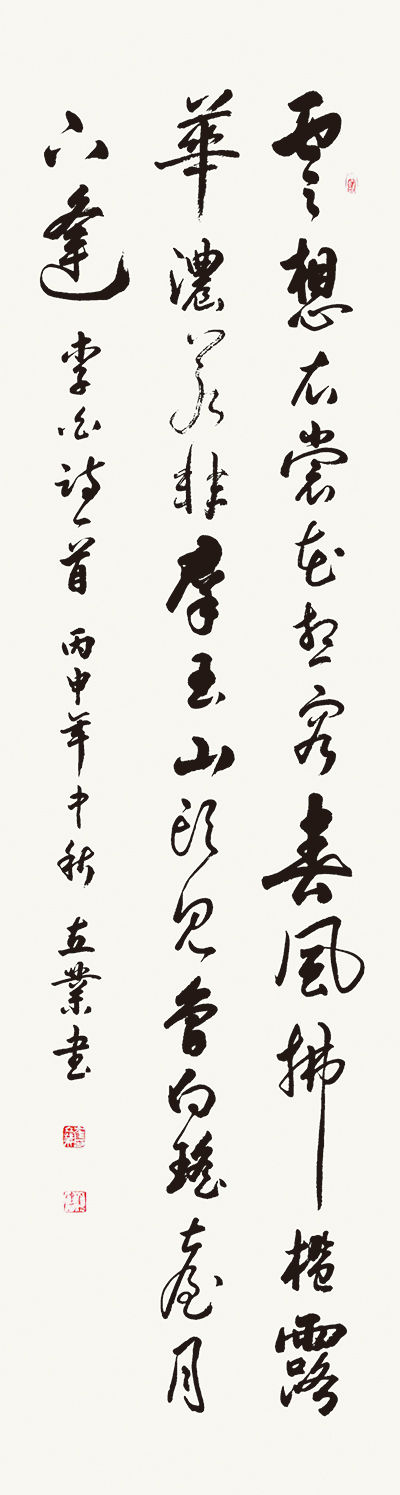 雲想衣裳花想容春風拂檻露
華濃若非羣玉山頭見會向瑤臺月
下逢 李白詩一首 丙申年中秋 立業書